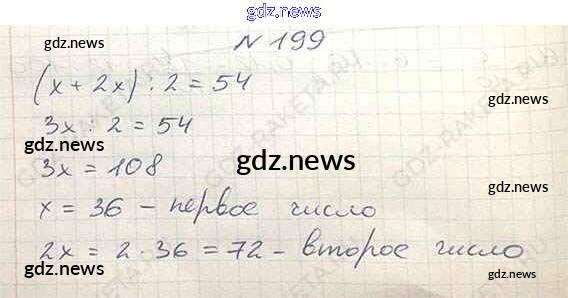 gdz.news
gdz.news
N 199
gdz.news
(x + 2x) : 2 = 54
gdz.news
3x : 2 = 54
gdz.news
gdz.news
3x = 108
gdz.news
gdz.news
x = 36 – первое число
2x = 2 · 36 = 72 – второе число
gdz.news
gdz.news